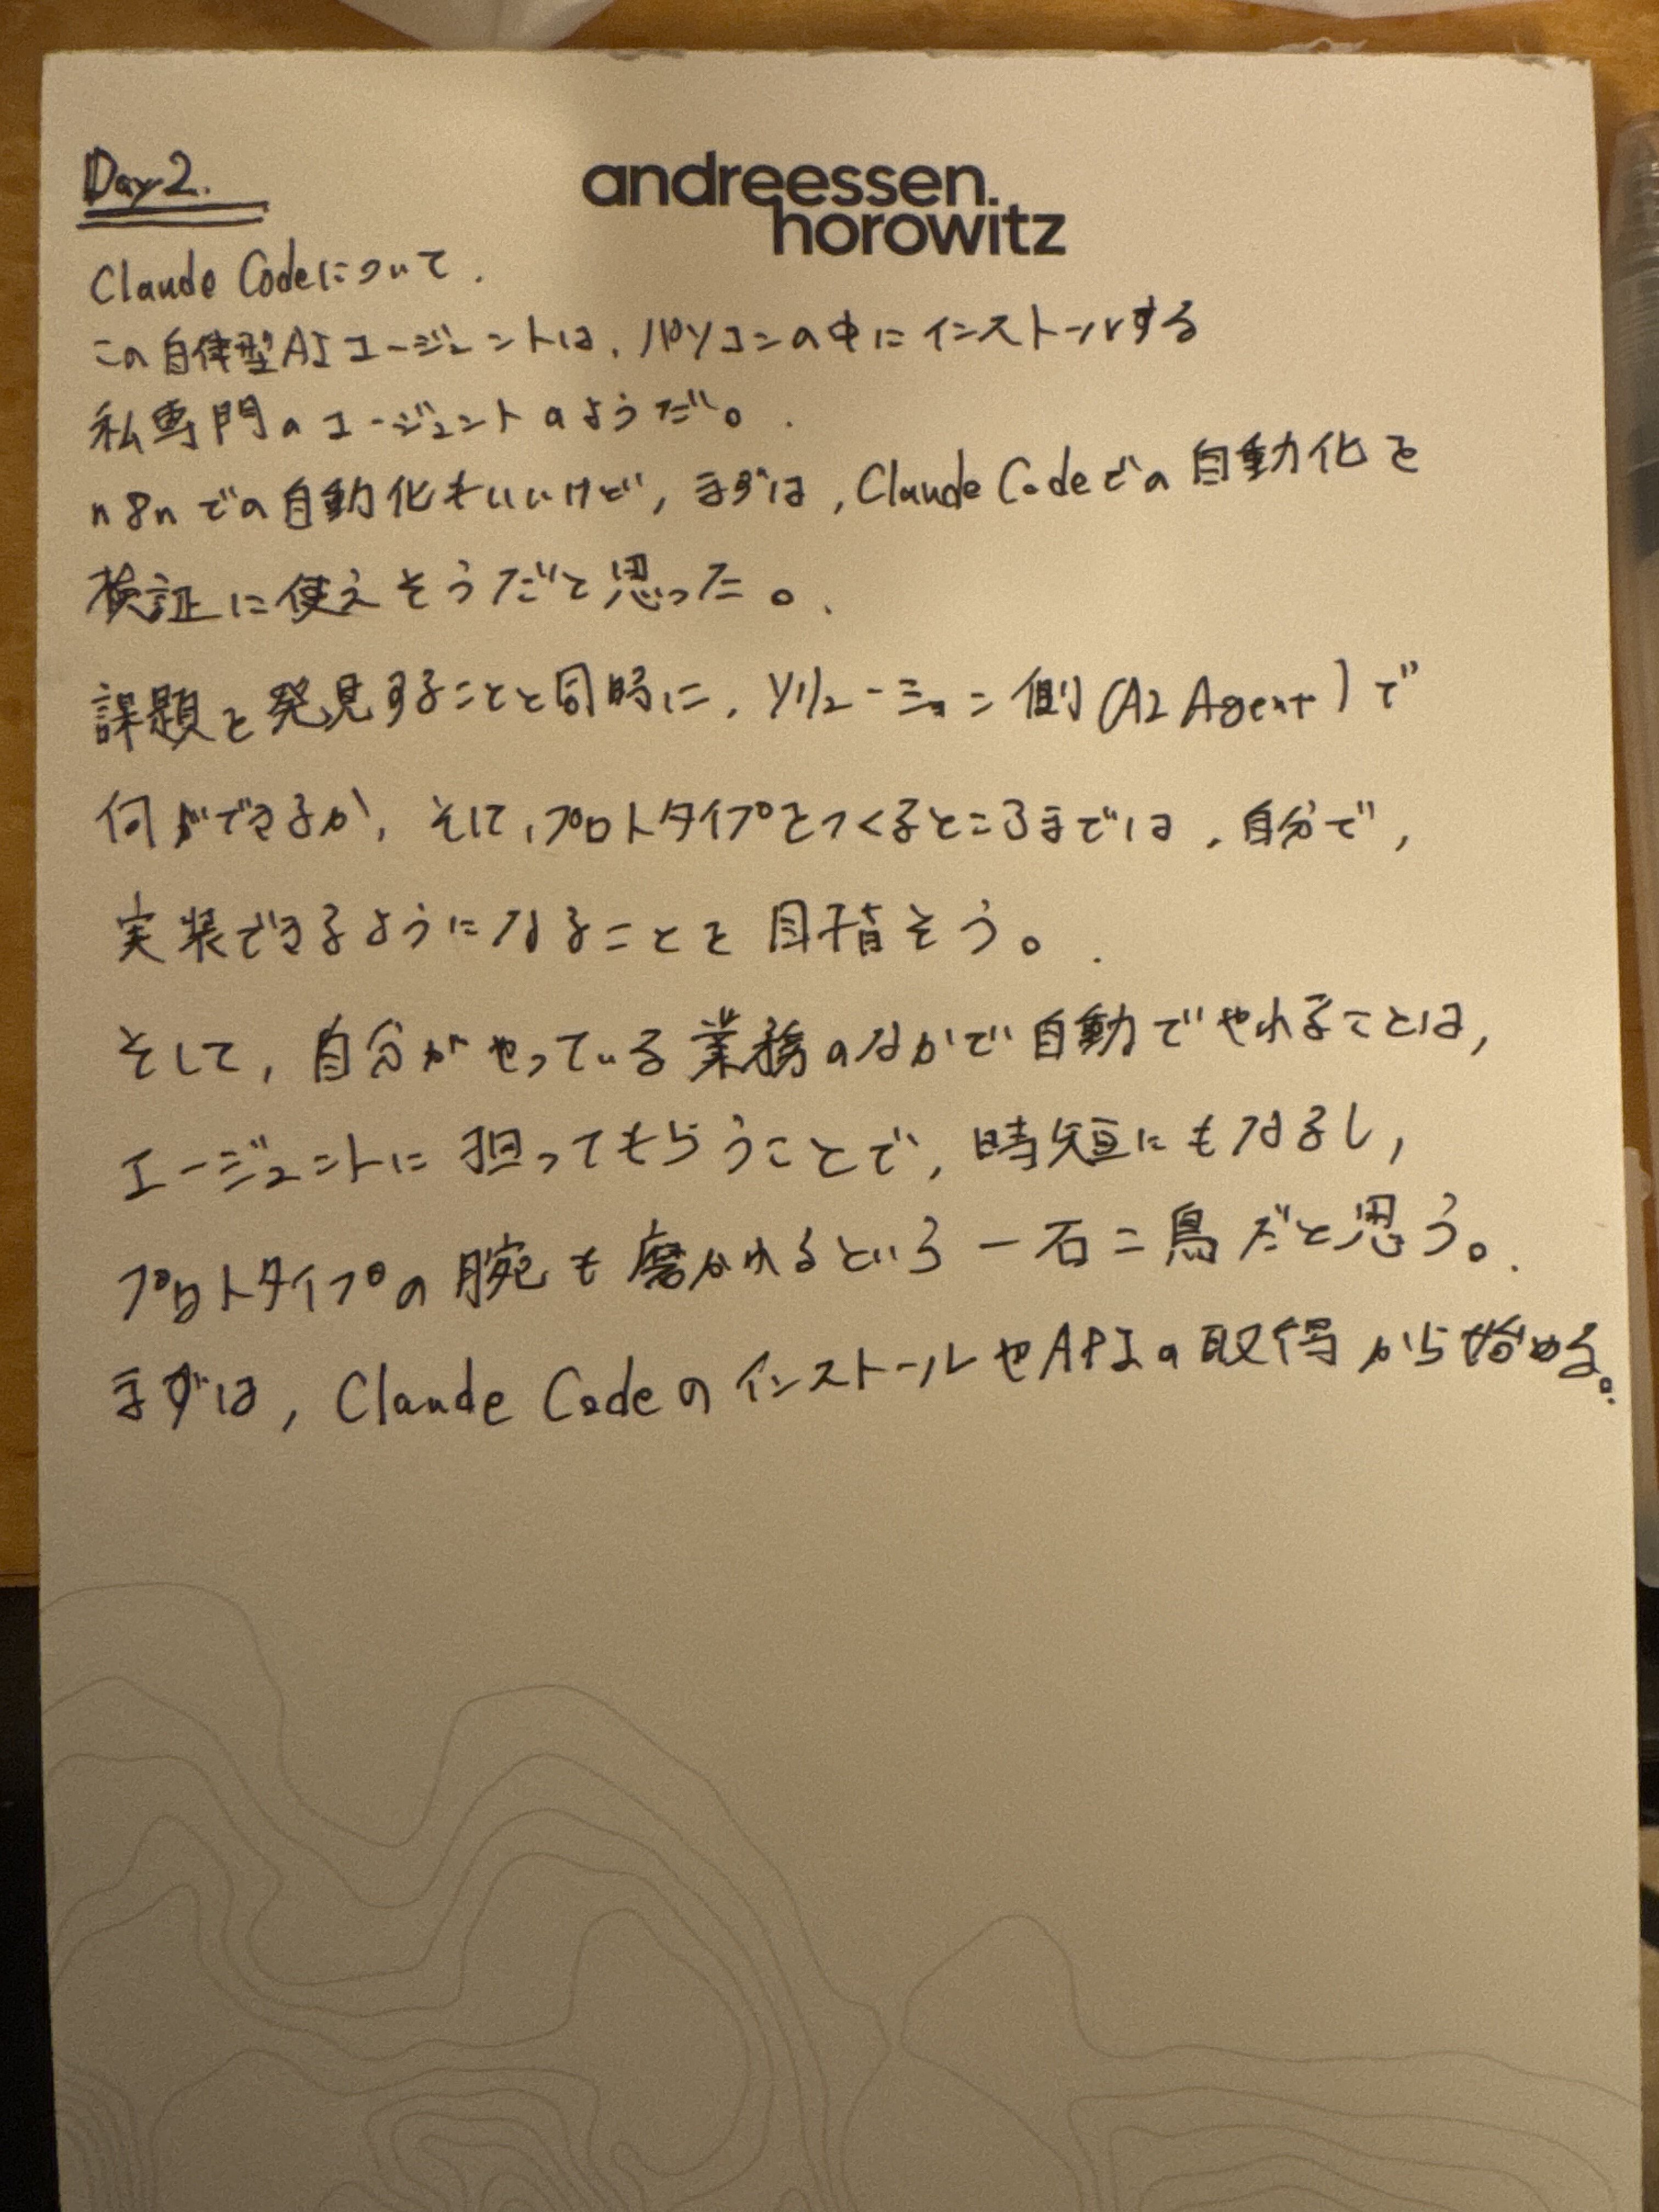 Day 2.
andreessen.
horowitz
Claude Codeについて.
この自律型AIエージェントは、パソコンの中にインストールする
私専門のエージェントのようだ。.
n8nでの自動化もいいけど, まずは, Claude Codeでの自動化を
検証に使えそうだと思った。.
課題を発見することと同時に、ソリューション側(AI Agent)で
何ができるか, そして、プロトタイプをつくるところまでは、自分で,
実装できるようになることを目指そう。.
そして, 自分がやっている業務のなかで自動でやれることは,
エージェントに担ってもらうことで, 時短にもなるし,
プロトタイプの腕も磨かれるという一石二鳥だと思う。.
まずは, Claude CodeのインストールやAPIの取得から始める。.